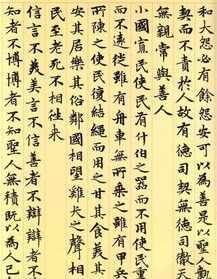 和大怨必有餘怨安可以為善是以聖人
契而不責於人故有德司契無德司徹
無親常與善人
小國寡民使民有什伯之器而不用使民重
而不遠徙雖有舟車無所乘之雖有甲兵
所陳之使民復結繩而用之甘其食美其
安其居樂其俗鄰國相望雞犬之聲相
民至老死不相往來
信言不美美言不信善者不辯辯者不
知者不博博者不知聖人無積既以為人己